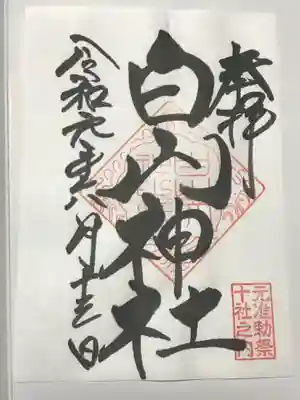 奉拝
白山神社
令和元年六月十三日
元准勅祭
十社之内